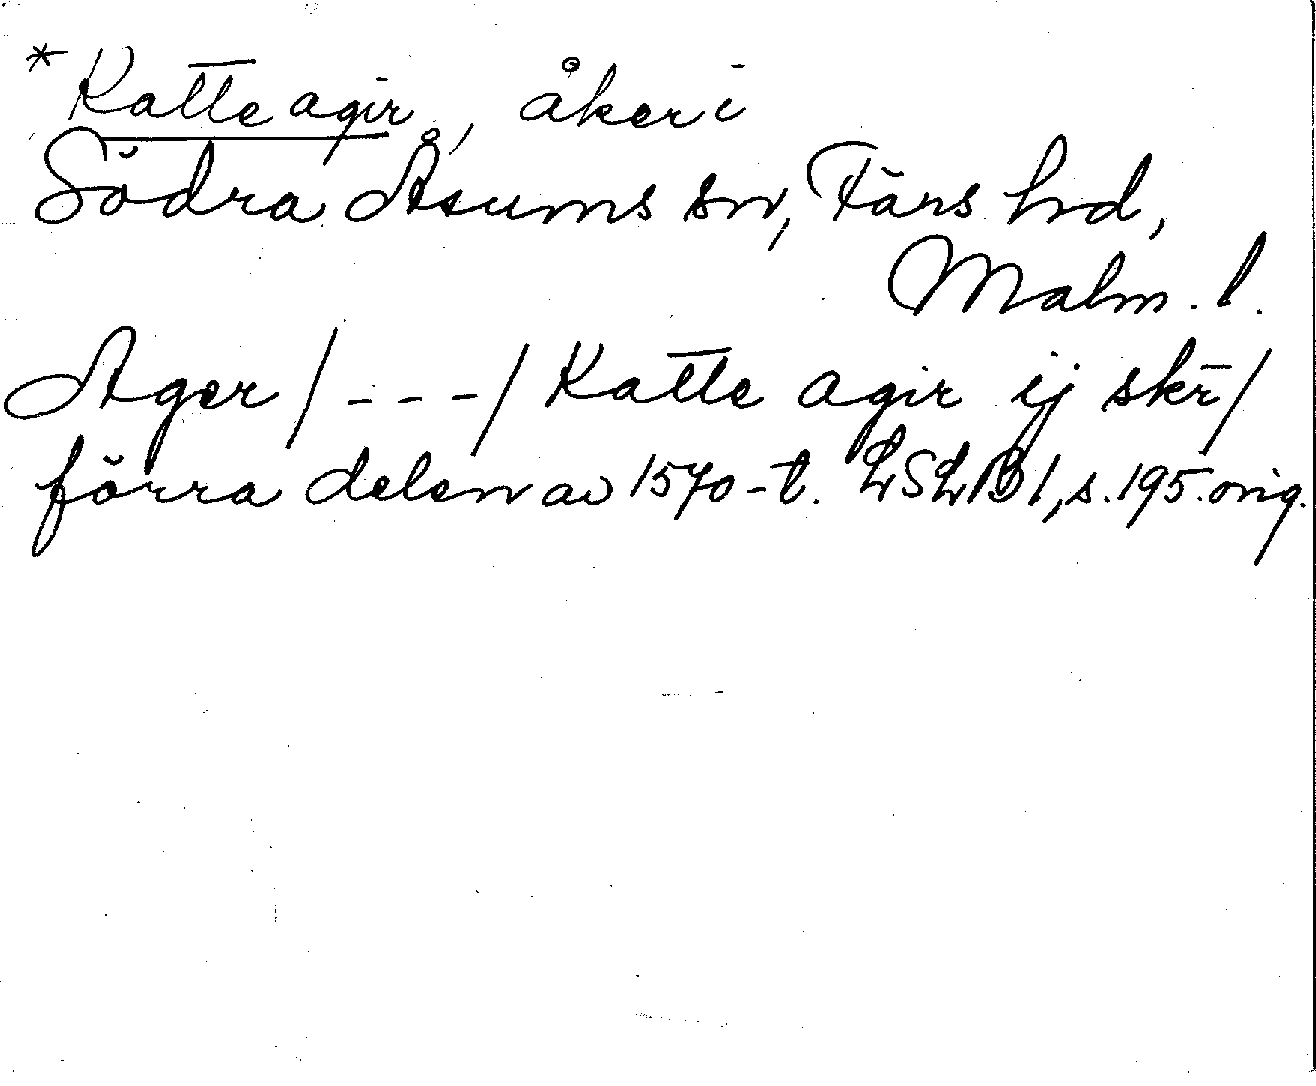 * Katte agir, åker i
Södra Åsums sn, Färs hd,
Malm. l.
Ager / - - - / Katte agir ij skr̄ /
förra delen av 1570-t. LSLB 1, s. 195. orig.